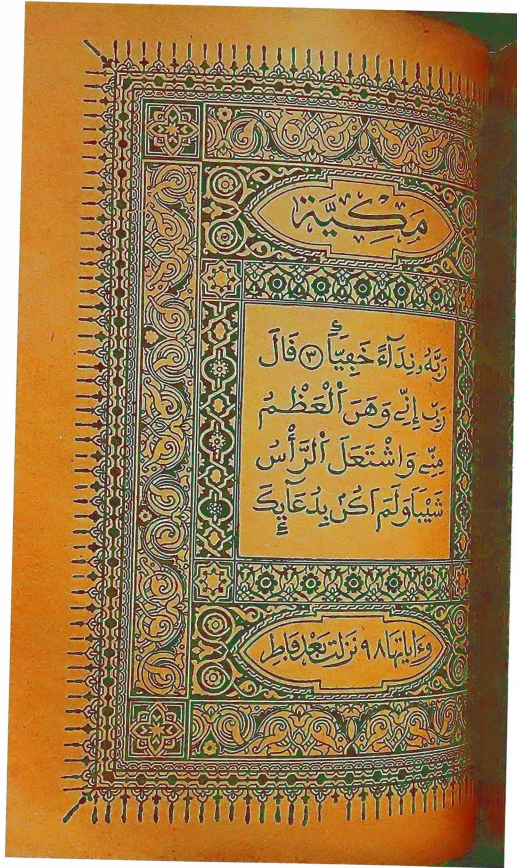 مَكِّيَّة
رَبَّهُۥ نِدَآءً خَفِيّاًۖ ٣ قَالَ
رَبِّ إِنِّے وَهَنَ اَ۬لْعَظْمُ
مِنِّے وَاشْتَعَلَ اَ۬لرَّأْسُ
شَيْباً وَلَمَ اَكُنۢ بِدُعَآئِكَ
وءاياتها ٩٨ نزلت بعد فاطر